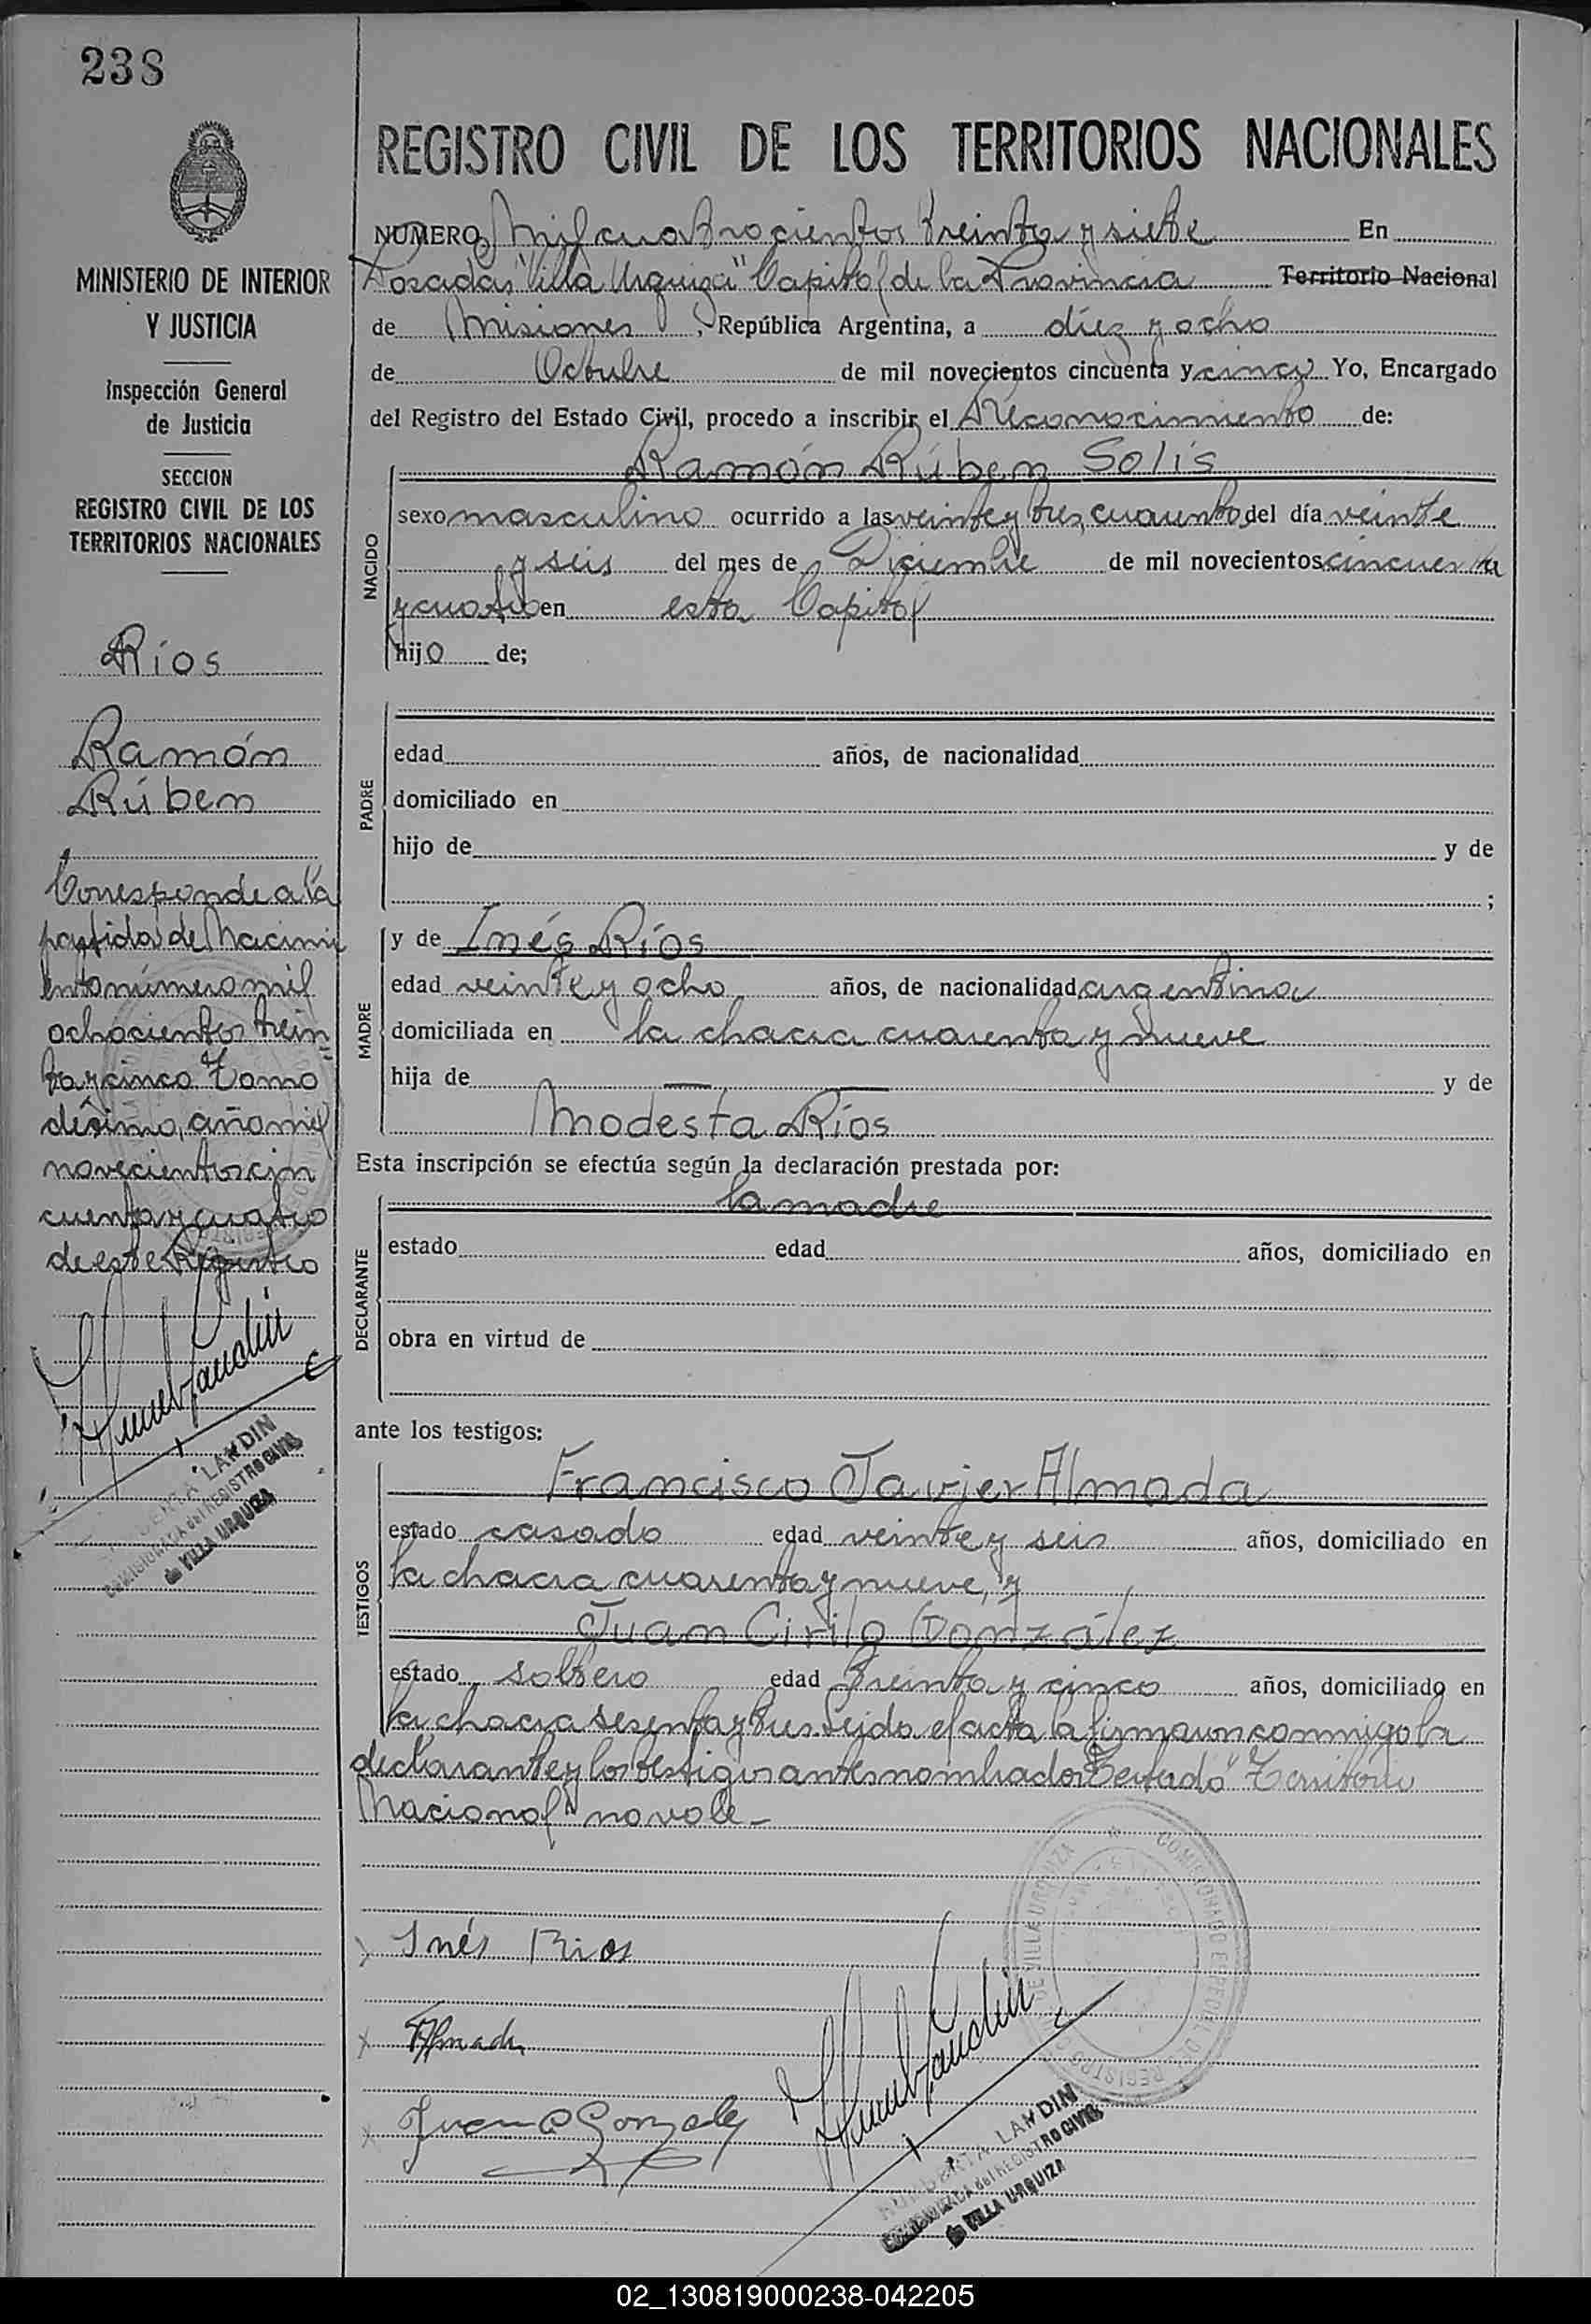 238
REGISTRO CIVIL DE LOS TERRITORIOS NACIONALES
MINISTERIO DE INTERIOR
Y JUSTICIA
Inspección General
de Justicia
SECCION
REGISTRO CIVIL DE LOS
TERRITORIOS NACIONALES
Ríos
Ramón
Rúben
Corresponde a la
partida de Nacimi
ento número mil
ochocientos trein=
ta y cinco Tomo
décimo, año mil
novecientos cin
cuenta y cuatro
de este Registro
LANDIN
COMISIONADA del REGISTRO CIVIL
de VILLA URQUIZA
NUMERO Mil cuatrocientos treinta y siete En
Posadas "Villa Urquiza" Capital de la Provincia Territorio Nacional
de Misiones, República Argentina, a diez y ocho
de Octubre de mil novecientos cincuenta y cinco Yo, Encargado
del Registro del Estado Civil, procedo a inscribir el Reconocimiento de:
NACIDO
Ramón Rúben Solís
sexo masculino ocurrido a las veinte y tres, cuarenta del día veinte
y seis del mes de Diciembre de mil novecientos cincuenta
y cuatro en esta Capital
hijo de;
PADRE
edad años, de nacionalidad
domiciliado en
hijo de y de
;
MADRE
y de Inés Ríos
edad veinte y ocho años, de nacionalidad argentina
domiciliada en la chacra cuarenta y nueve
hija de — — y de
Modesta Ríos
Esta inscripción se efectúa según la declaración prestada por:
DECLARANTE
la madre
estado edad años, domiciliado en
obra en virtud de
ante los testigos:
TESTIGOS
Francisco Javier Almada
estado casado edad veinte y seis años, domiciliado en
la chacra cuarenta y nueve, y
Juan Cirilo González
estado soltero edad treinta y cinco años, domiciliado en
la chacra sesenta y tres. Leída el acta la firmaron conmigo la
declarante y los testigos antes nombrados Testado "Territorio
Nacional" no vale -
Inés Rios
FAlmada
Juan C Gonzalez
COMISIONADO ESPECIAL DEL REGISTRO
DE VILLA URQUIZA
HUMBERTA LANDIN
COMISIONADA del REGISTRO CIVIL
de VILLA URQUIZA
02_130819000238-042205